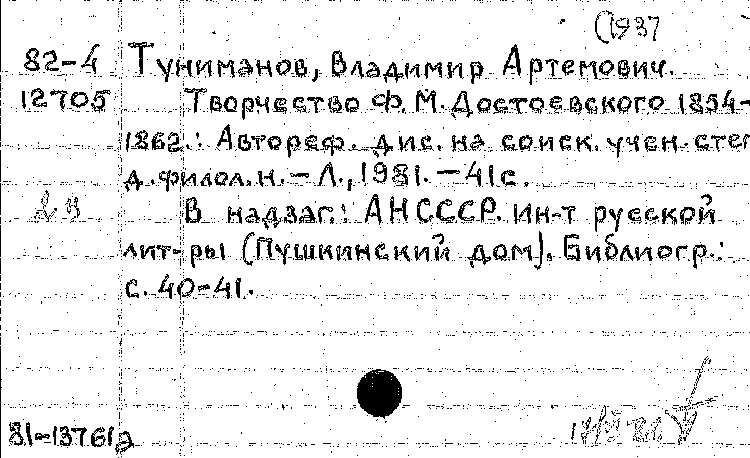 (1937
82-4 Туниманов, Владимир Артемович.
12705 Творчество Ф.М. Достоевского 1854-
1862.: Автореф. дис. на соиск. учен. степ
д. филол. н. – Л., 1981. – 41 с.
В надзаг.: АН СССР. Ин-т русской
лит-ры (Пушкинский дом). Библиогр.:
с. 40-41.
81-13761а